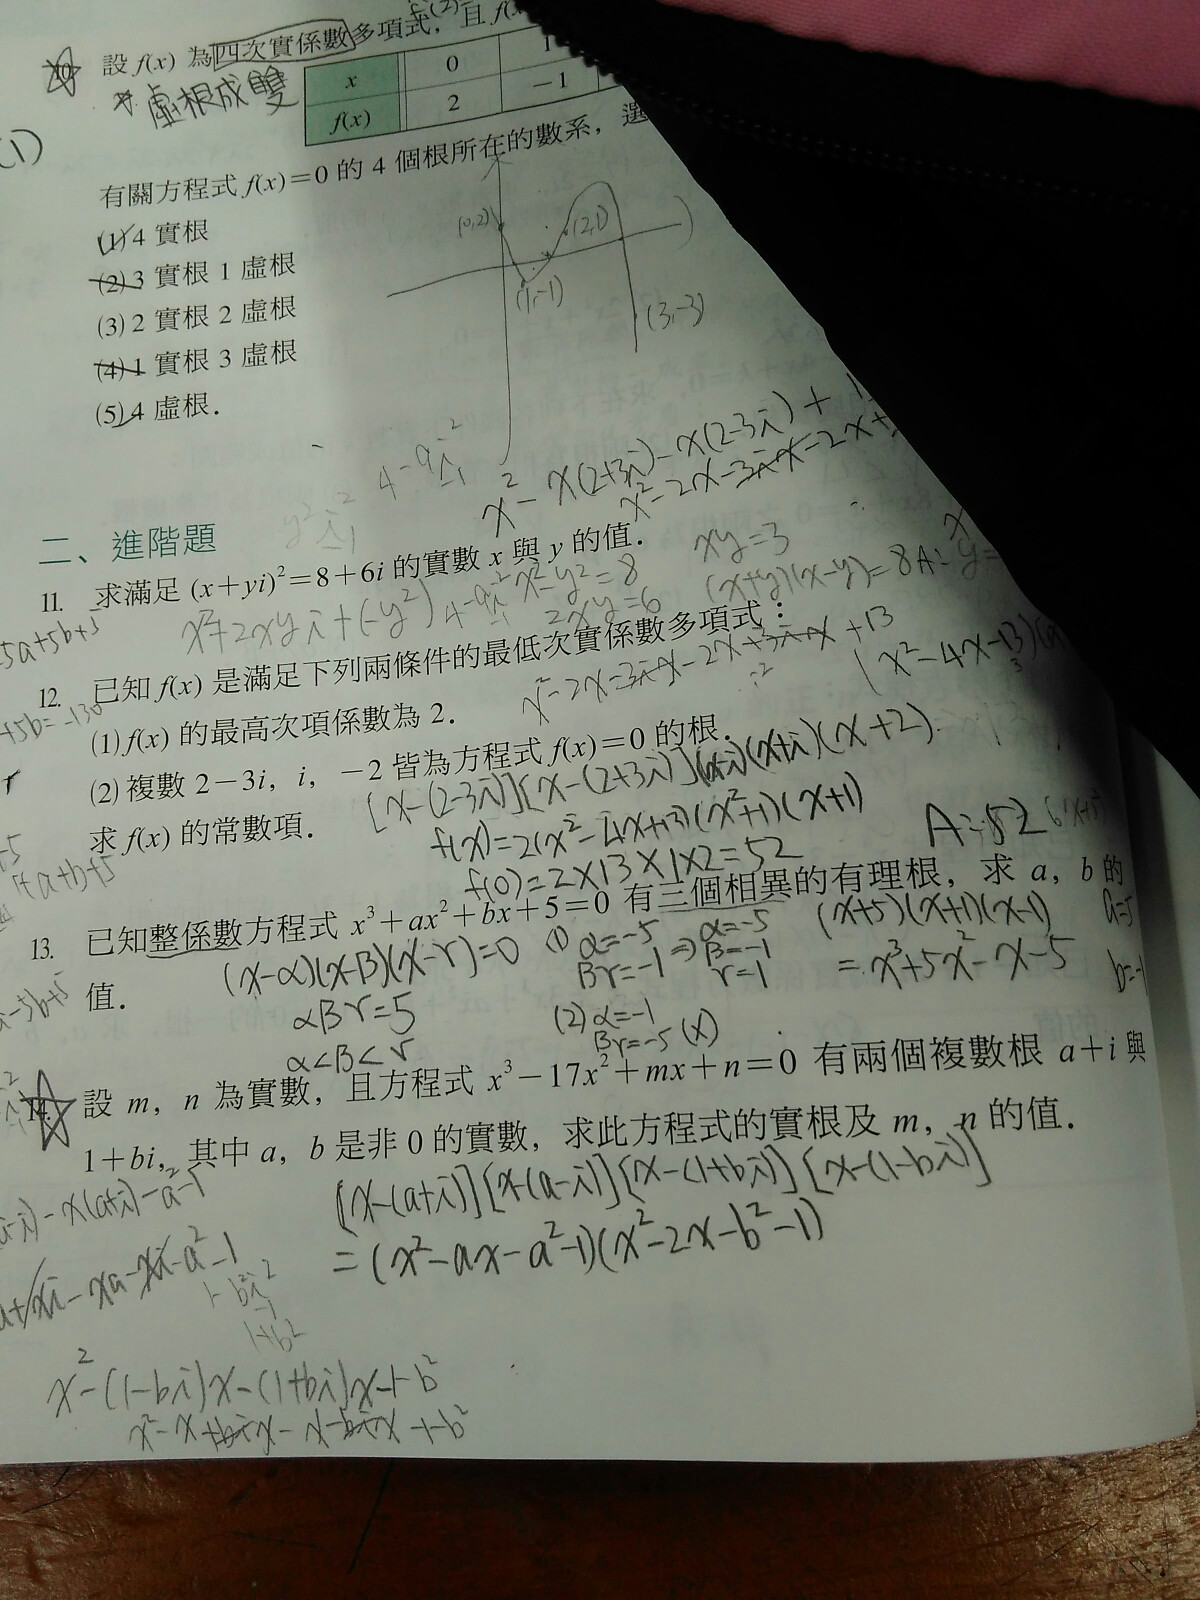 設 f(x) 為四次實係數多項式，且 f(x
x 0 1
f(x) 2 −1
*虛根成雙
(1)
有關方程式 f(x)=0 的 4 個根所在的數系，選
(1) 4 實根
(2) 3 實根 1 虛根
(3) 2 實根 2 虛根
(4) 1 實根 3 虛根
(5) 4 虛根．
(0,2)
(2,1)
(1,-1)
(3,-3)
4-9i²
-1
x²-x(2+3i)-x(2-3i)+1
x²-2x-3ix-2x+
y²i²
-1
二、進階題
11. 求滿足 (x+yi)²=8+6i 的實數 x 與 y 的值．
xy=3
x²+2xyi+(-y²)
4-9i²
-1
x²-y²=8
2xy=6
(x+y)(x-y)=8
A: y=
5a+5b+5
12. 已知 f(x) 是滿足下列兩條件的最低次實係數多項式：
x²-2x-3ix-2x+3ix+13
(x²-4x-13)
+5b=-130
(1) f(x) 的最高次項係數為 2．
(2) 複數 2−3i，i，−2 皆為方程式 f(x)=0 的根．
[x-(2-3i)][x-(2+3i)](x-i)(x+i)(x+2)
求 f(x) 的常數項．
f(x)=2(x²-4x+13)(x²+1)(x+1)
f(0)=2×13×1×2=52
A:52
13. 已知整係數方程式 x³+ax²+bx+5=0 有三個相異的有理根，求 a，b 的
值．
(x-α)(x-β)(x-r)=0
αβr=5
α<β<r
(1) α=-5
βr=-1
⇒
α=-5
β=-1
r=1
(2) α=-1
βr=-5 (x)
(x+5)(x+1)(x-1)
=x³+5x²-x-5
a=5
b=-1
-5b+5
14. 設 m，n 為實數，且方程式 x³−17x²+mx+n=0 有兩個複數根 a+i 與
1+bi，其中 a，b 是非 0 的實數，求此方程式的實根及 m，n 的值．
[x-(a+i)][x-(a-i)][x-(1+bi)][x-(1-bi)]
=(x²-ax-a²-1)(x²-2x-b²-1)
-i)-x(a+i)-a²-1
a+xi-xa-xi-a²-1
1-b²i²
-1
1+b²
x²-(1-bi)x-(1+bi)x+1-b²
x²-x+bix-x-bix+1-b²